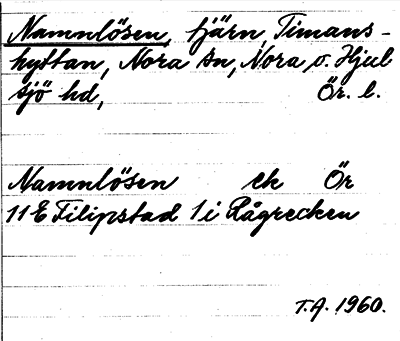 Namnlösen, tjärn, Timans-
hyttan, Nora sn, Nora o. Hjul
sjö hd, Ör. l.
Namnlösen ek Ör
11 E Filipstad 1 i Rågrecken
T.A. 1960.